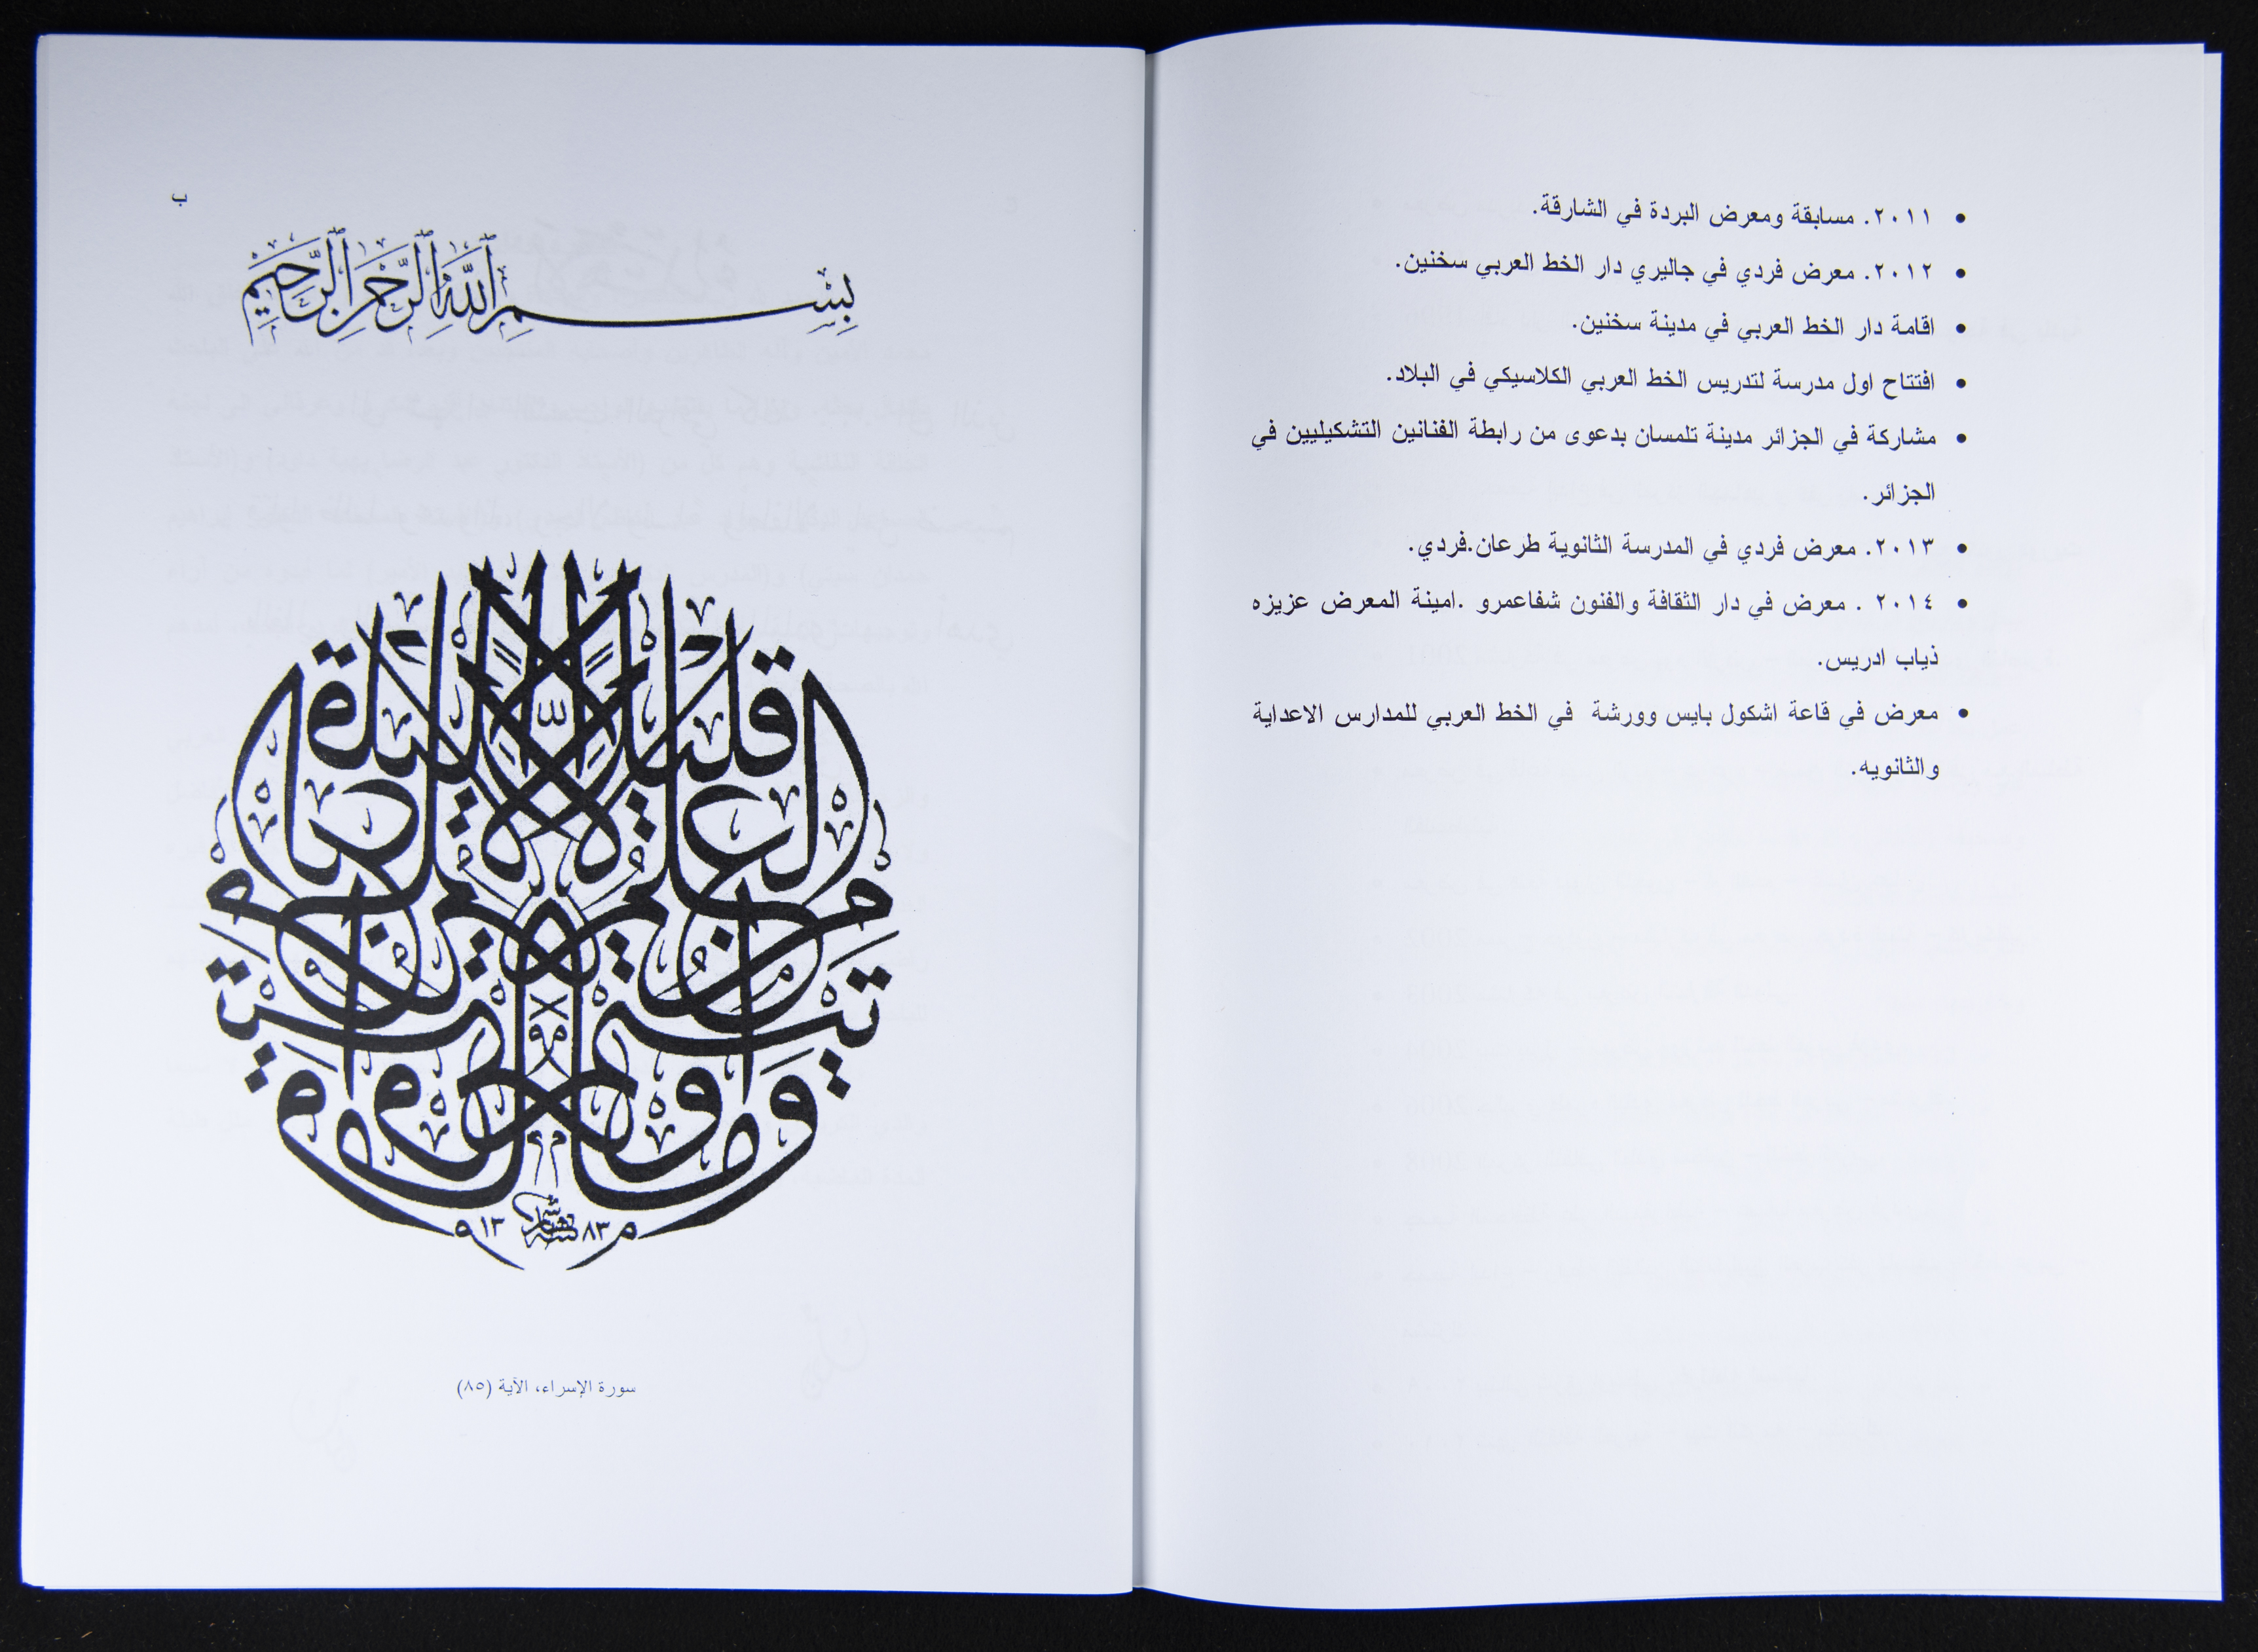 • ٢٠١١. مسابقة ومعرض البردة في الشارقة.
• ٢٠١٢. معرض فردي في جاليري دار الخط العربي سخنين.
• اقامة دار الخط العربي في مدينة سخنين.
• افتتاح اول مدرسة لتدريس الخط العربي الكلاسيكي في البلاد.
• مشاركة في الجزائر مدينة تلمسان بدعوى من رابطة الفنانين التشكيليين في
الجزائر.
• ٢٠١٣. معرض فردي في المدرسة الثانوية طرعان.فردي.
• ٢٠١٤ . معرض في دار الثقافة والفنون شفاعمرو .امينة المعرض عزيزه
ذياب ادريس.
• معرض في قاعة اشكول بايس وورشة في الخط العربي للمدارس الاعداية
والثانويه.
ب
بِسْمِ ٱللَّهِ ٱلرَّحْمَٰنِ ٱلرَّحِيمِ
وما أوتيتم من العلم إلا قليلا
١٣ هاشم ٨٣
سورة الإسراء، الآية (٨٥)